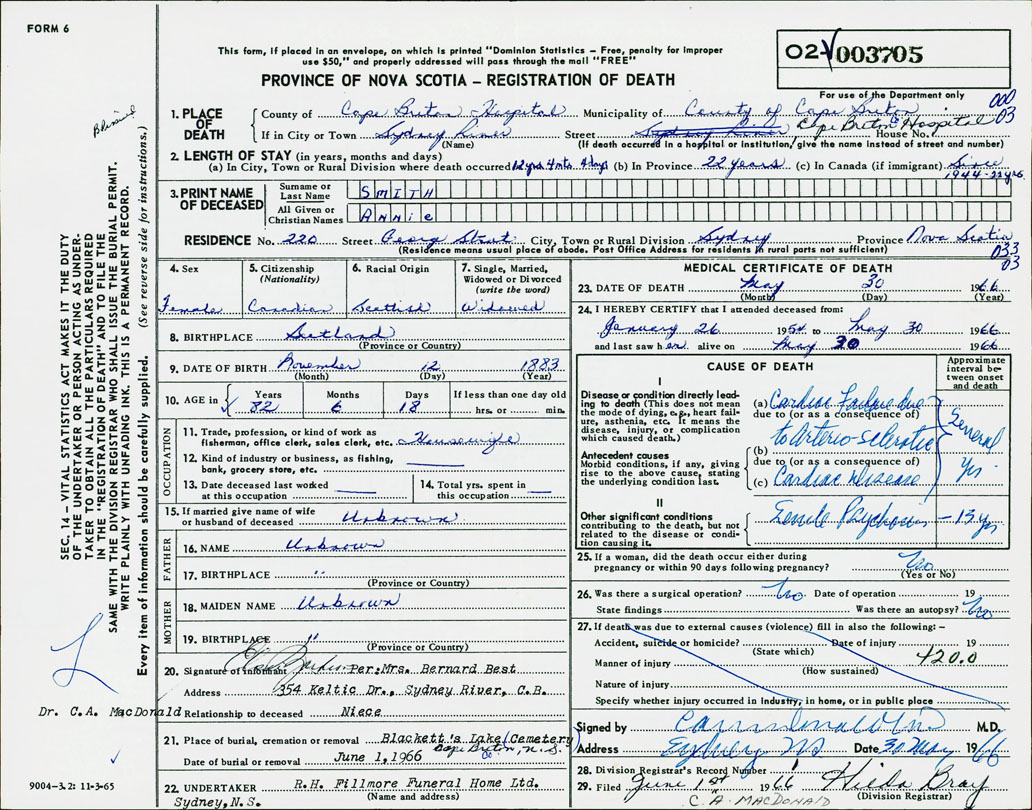 FORM 6
This form, if placed in an envelope, on which is printed "Dominion Statistics – Free, penalty for improper
use $50," and properly addressed will pass through the mail "FREE"
PROVINCE OF NOVA SCOTIA – REGISTRATION OF DEATH
02-003705
For use of the Department only
000
03
1. PLACE OF DEATH
County of Cape Breton Hospital Municipality of County of Cape Breton
If in City or Town Sydney River Street Sydney River Cape Breton Hospital House No.
(Name) (If death occurred in a hospital or institution, give the name instead of street and number)
2. LENGTH OF STAY (in years, months and days)
(a) In City, Town or Rural Division where death occurred 12 yrs 4 mts 4 days (b) In Province 22 years (c) In Canada (if immigrant) Since
1944-22 yrs.
3. PRINT NAME OF DECEASED
Surname or Last Name SMITH
All Given or Christian Names Annie
RESIDENCE No. 220 Street Georg Street City, Town or Rural Division Sydney Province Nova Scotia
(Residence means usual place of abode. Post Office Address for residents in rural parts not sufficient)
033
03
4. Sex Female
5. Citizenship (Nationality) Canadian
6. Racial Origin Scottish
7. Single, Married, Widowed or Divorced (write the word) Widowed
8. BIRTHPLACE Scotland
(Province or Country)
9. DATE OF BIRTH November 12 1883
(Month) (Day) (Year)
10. AGE in Years 82 Months 6 Days 18 If less than one day old hrs. or min.
OCCUPATION
11. Trade, profession, or kind of work as
fisherman, office clerk, sales clerk, etc. Housewife
12. Kind of industry or business, as fishing,
bank, grocery store, etc.
13. Date deceased last worked
at this occupation
14. Total yrs. spent in
this occupation
15. If married give name of wife
or husband of deceased Unknown
FATHER
16. NAME Unknown
17. BIRTHPLACE "
(Province or Country)
MOTHER
18. MAIDEN NAME Unknown
19. BIRTHPLACE "
(Province or Country)
20. Signature of informant Per: Mrs. Bernard Best
Address 354 Keltic Dr., Sydney River, C.B.
Relationship to deceased Niece
21. Place of burial, cremation or removal Blackett's Lake Cemetery
Cape Breton, N.S.
Date of burial or removal June 1,1966
22. UNDERTAKER R.H. Fillmore Funeral Home Ltd.
(Name and address)
Sydney, N.S.
MEDICAL CERTIFICATE OF DEATH
23. DATE OF DEATH May 30 1966
(Month) (Day) (Year)
24. I HEREBY CERTIFY that I attended deceased from:
January 26 1954 to May 30 1966
and last saw her alive on May 30 1966
CAUSE OF DEATH
Approximate interval between onset and death
I
Disease or condition directly leading to death (This does not mean the mode of dying, e.g., heart failure, asthenia, etc. It means the disease, injury, or complication which caused death.)
(a) Cardiac Failure due
due to (or as a consequence of)
to Arterio-sclerotic
Antecedent causes
Morbid conditions, if any, giving rise to the above cause, stating the underlying condition last.
(b)
due to (or as a consequence of)
(c) Cardiac Disease
Several
Yrs.
II
Other significant conditions
contributing to the death, but not related to the disease or condition causing it.
Senile Psychosis – 13 yrs
25. If a woman, did the death occur either during
pregnancy or within 90 days following pregnancy? No
(Yes or No)
26. Was there a surgical operation? No Date of operation 19
State findings Was there an autopsy? No
27. If death was due to external causes (violence) fill in also the following: –
Accident, suicide or homicide? Date of injury 19
(State which)
420.0
Manner of injury
(How sustained)
Nature of injury
Specify whether injury occurred in Industry, in home, or in public place
Signed by M.D.
Address Sydney NS Date 30 May 1966
28. Division Registrar's Record Number
29. Filed June 1st 1966 Hilda Bray
(Division Registrar)
C. A. MACDONALD
SEC. 14 – VITAL STATISTICS ACT MAKES IT THE DUTY
OF THE UNDERTAKER OR PERSON ACTING AS UNDER-
TAKER TO OBTAIN ALL THE PARTICULARS REQUIRED
IN THE "REGISTRATION OF DEATH" AND TO FILE THE
SAME WITH THE DIVISION REGISTRAR WHO SHALL ISSUE THE BURIAL PERMIT.
WRITE PLAINLY WITH UNFADING INK. THIS IS A PERMANENT RECORD.
Every item of information should be carefully supplied. (See reverse side for instructions.)
Dr. C.A. MacDonald
9004–3.2: 11-3-65